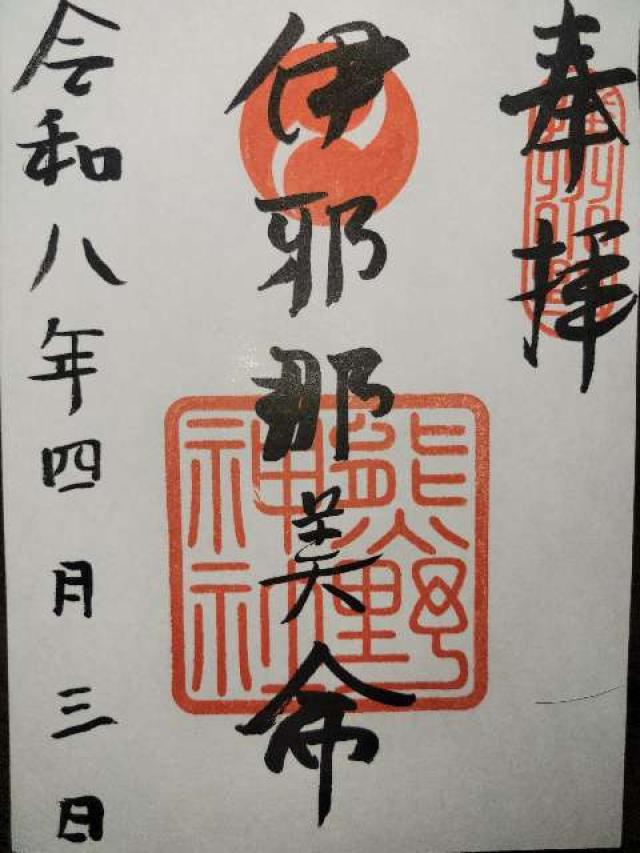 奉拝
伊耶那美命
熊野
神社
令和八年四月三日